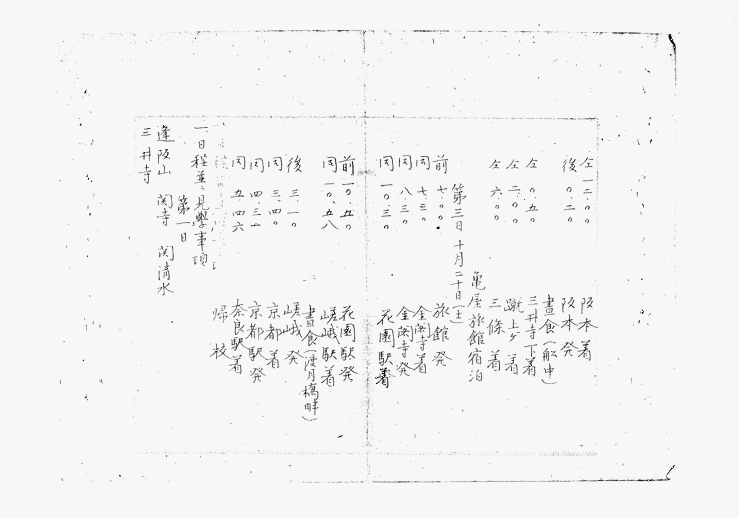 仝一二、〇〇 阪本着
後〇、二〇 阪本発
晝食(船中)
仝〇、五〇 三井寺下着
仝二、〇〇 蹴上ケ着
仝六、〇〇 三條着
亀屋旅館宿泊
第三日 十月二十日(土)
前七、〇〇 旅館発
同七、三〇 金閣寺着
同八、三〇 金閣寺発
同一〇、三〇 花園駅着
前一〇、五〇 花園駅発
同一〇、五八 嵯峨駅着
晝食(渡月橋畔)
後三、一〇 嵯峨発
同三、四〇 京都着
同四、三一 京都駅発
同五、四六 奈良駅着
帰校
一日程並ニ見學事項
第一日
逢阪山 関寺 関清水
三井寺